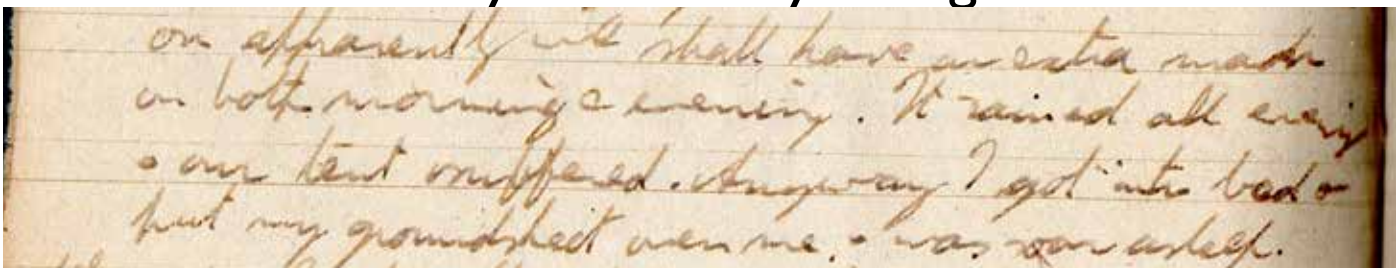 on apparently we shall have an extra
in both morning & evening. It rained all evening
& our tent suffered. Anyway I got into bed &
put my groundsheet over me, & was soon asleep.